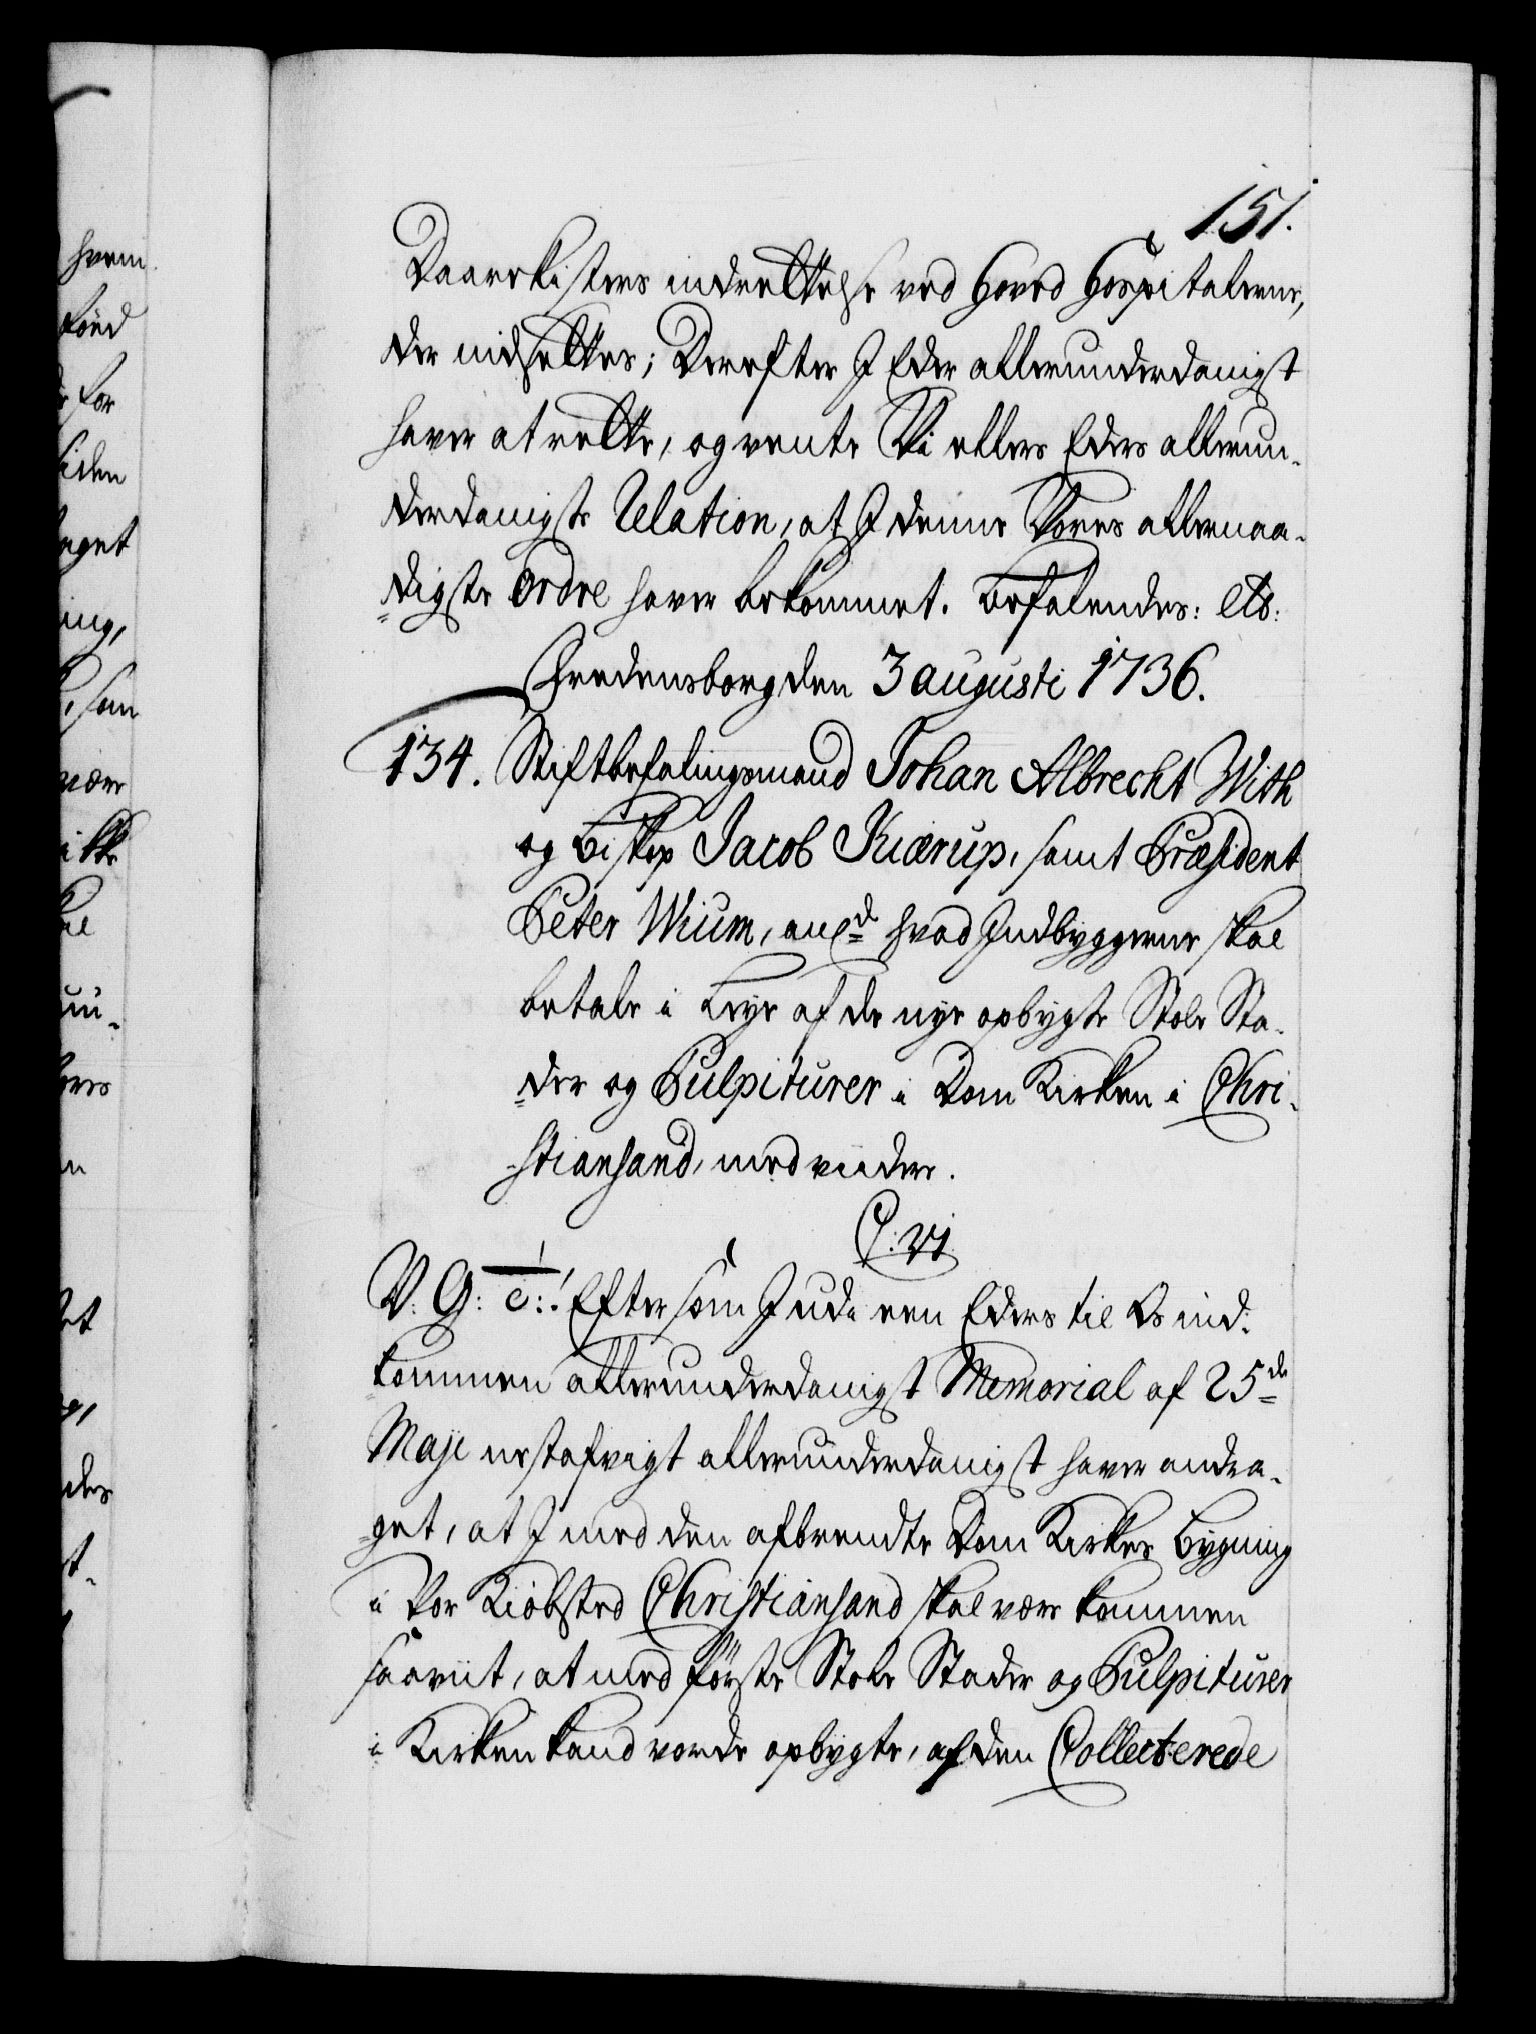 151.
Daarekisters indrettelse ved Hoved Hospitalerne,
der nedsettes; Derefter I Eder allerunderdanigst
haver at rette, og vente Vi ellers Eders allerun-
derdanigste Relation, at I denne Vores allernaa-
digste Ordre haver bekommet. Befalendes: etc:
Fredensborg den 3 augusti 1736.
134. Stiftbefalingsmand Johan Albrecht With
og Biskop Jacob Kiærup, samt Præsident
Peter Wium, angd hvad Indbyggerne skal
betale i Leye af de nye opbygte Stole Sta-
der og Pulpiturer i Dom Kirken i Chri-
stiansand, med viidere.
C: VI
V: G: T: Eftersom I udi een Eders til Os ind-
kommen allerunderdanigst Memorial af 25de
Maji nestafvigt allerunderdanigst haver andra-
get, at I med den afbrendte Dom Kirkes Bygning
i Vor Kiøbsted Christiansand skal være kommen
saaviit, at med første Stole Stader og Pulpiturer
i Kirken kand vorde opbygte, af den Collecterede
hvem
for
siden
aget
ing,
som
være
ikke
ores
et
des